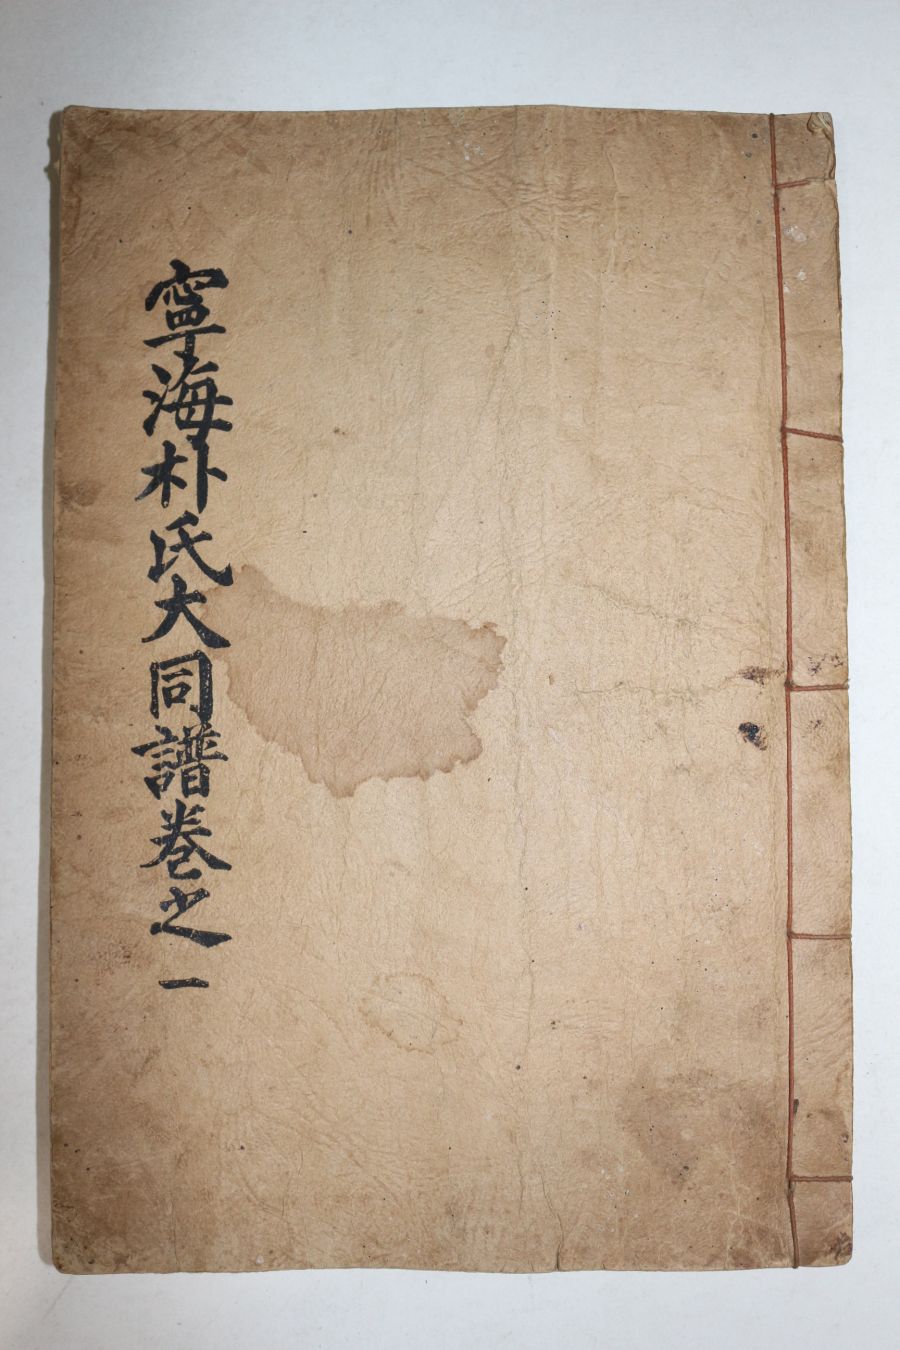 寧海朴氏大同譜卷之一